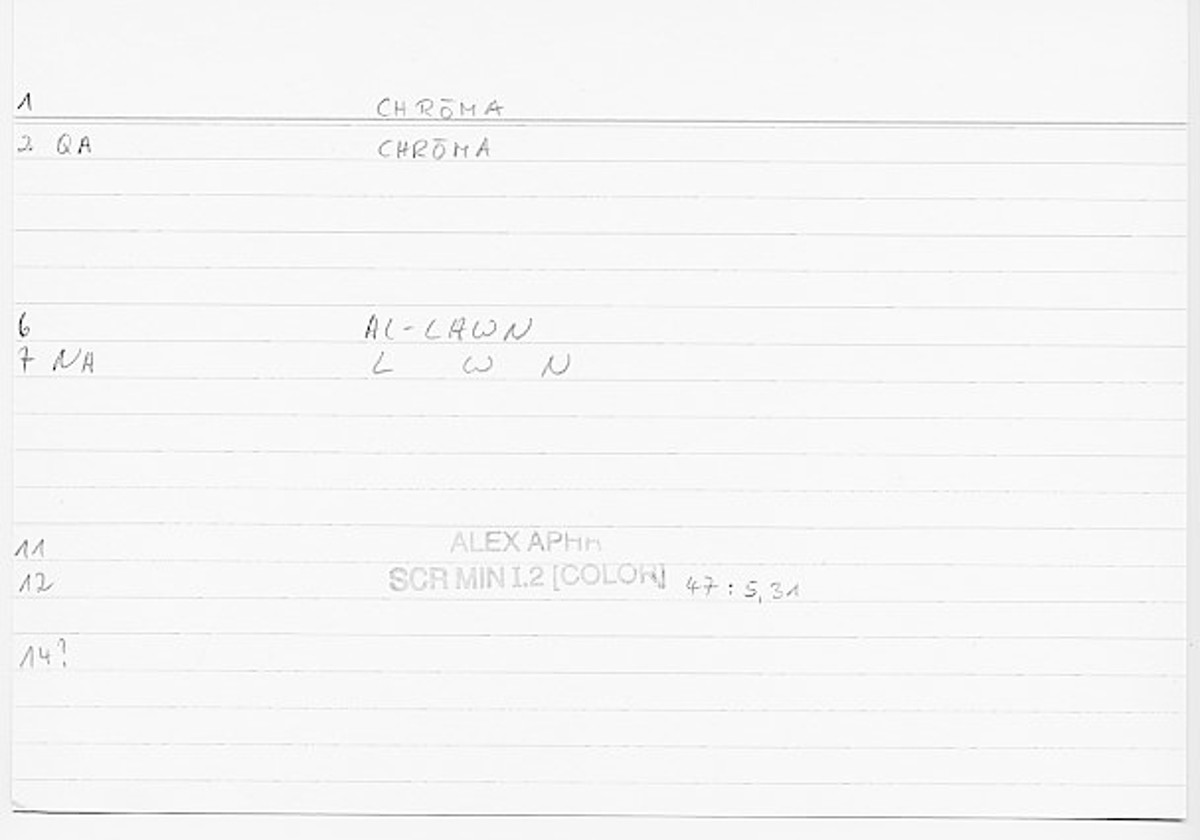 1 CHRŌMA
2. QA CHRŌMA
6 AL-LAWN
7 NA L W N
11 ALEX APHR
12 SCR MIN I.2 [COLOR] 47 : 5,31
14?